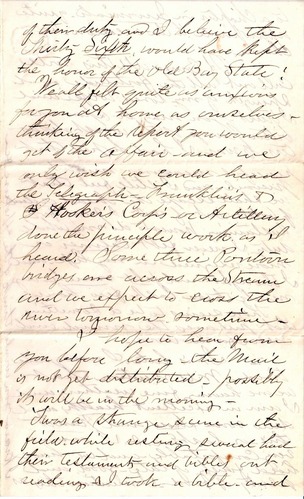 of their duty and I believe the
Thirty Sixth would have kept
the honor of the Old Bay State!
We all felt quite as anxious
for you at home as ourselves -
thinking of the report you would
get of the affair and we
only wish we could head
the Telegraph - Franklin's &
Hooker's Corps or Artillery
done the principle work as I
heard. Some three Pontoon
bridges are across the Stream
and we expect to cross the
river tomorrow sometime -
I hope to hear from
you before long - the Mail
is not yet distributed - possibly
it will be in the morning -
Twas a strange scene in the
field, while resting several had
their testaments and bibles out
reading & I took a bible and